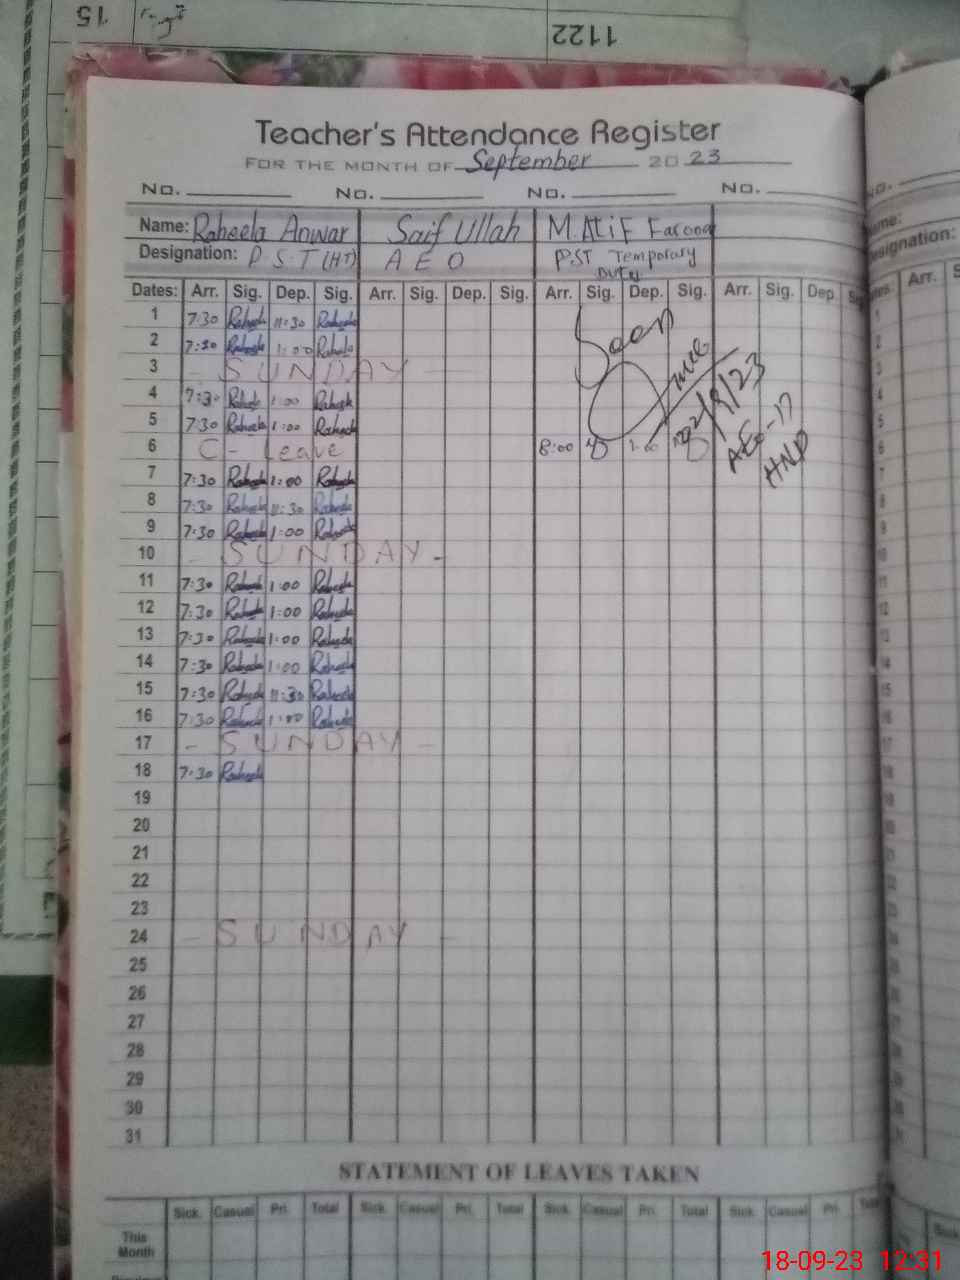 15
1122
Teacher's Attendance Register
FOR THE MONTH OF September 2023
No. No. No. No.
Name: Raheela Anwar Saif Ullah M. Atif Farooq
Designation: P.S.T (HT) A E O PST Temporary
Duty
Dates: Arr. Sig. Dep. Sig. Arr. Sig. Dep. Sig. Arr. Sig. Dep. Sig. Arr. Sig. Dep.
1 7:30 Raheela 11:30 Raheela
2 7:30 Raheela 1:00 Raheela
3 - SUNDAY -
4 7:30 Raheela 1:00 Raheela
5 7:30 Raheela 1:00 Raheela
6 C - Leave 8:00 1:00
7 7:30 Raheela 1:00 Raheela
8 7:30 Raheela 11:30 Raheela
9 7:30 Raheela 1:00 Raheela
10 - SUNDAY -
11 7:30 Raheela 1:00 Raheela
12 7:30 Raheela 1:00 Raheela
13 7:30 Raheela 1:00 Raheela
14 7:30 Raheela 1:00 Raheela
15 7:30 Raheela 11:30 Raheela
16 7:30 Raheela 1:00 Raheela
17 - SUNDAY -
18 7:30 Raheela
19
20
21
22
23
24 - SUNDAY -
25
26
27
28
29
30
31
Seen
AEO-17
HND
STATEMENT OF LEAVES TAKEN
Sick. Casual Pri. Total Sick. Casual Pri. Total Sick. Casual Pri. Total Sick. Casual Pri. Total
This
Month
Name:
Designation:
Arr.
18-09-23 12:31